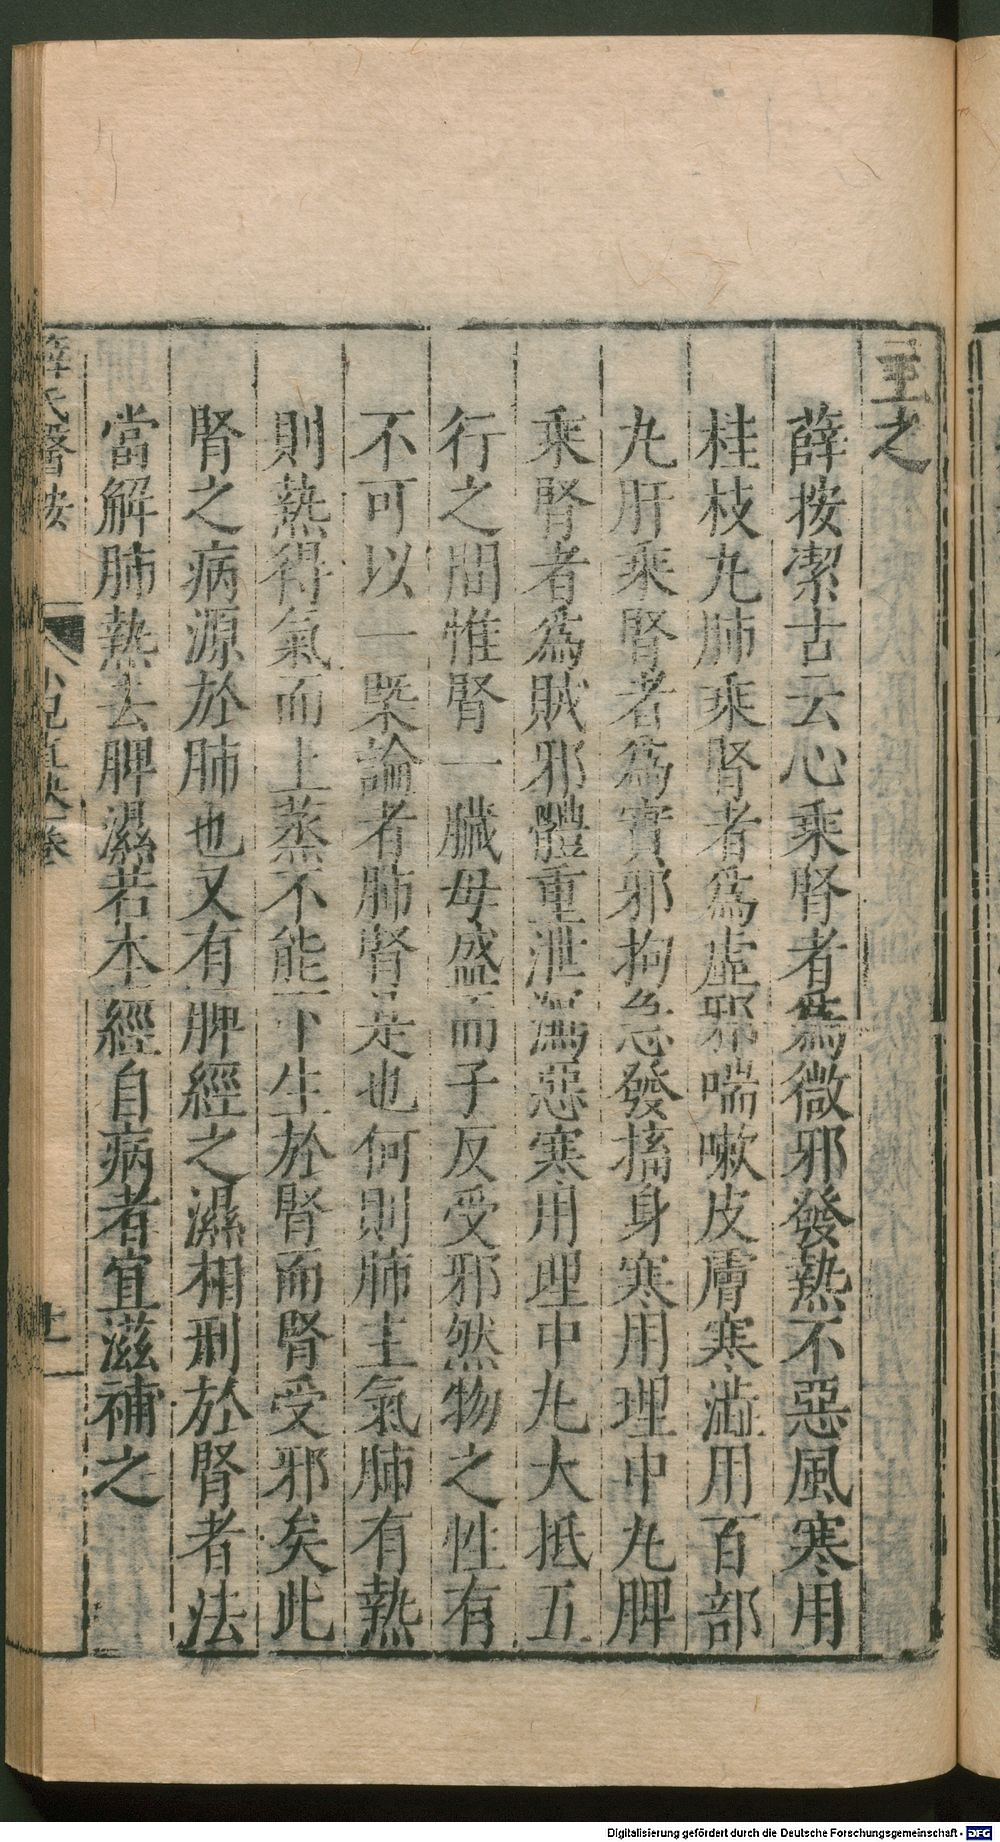 主之
薛按潔古云心乘腎者為微邪發熱不惡風寒用
桂枝丸肺乘腎者為虛邪喘嗽皮膚寒澁用百部
丸肝乘腎者為實邪拘急發搐身寒用理中丸脾
乘腎者為賊邪體重泄瀉惡寒用理中丸大抵五
行之間惟腎一臟母盛而子反受邪然物之性有
不可以一槩論者肺腎是也何則肺主氣肺有熱
則熱得氣而上蒸不能下生於腎而腎受邪矣此
腎之病源於肺也又有脾經之濕相刑於腎者法
當解肺熱去脾濕若本經自病者宜滋補之
薛氏醫按 小兒直訣卷 十一
Digitalisierung gefördert durch die Deutsche Forschungsgemeinschaft - DFG